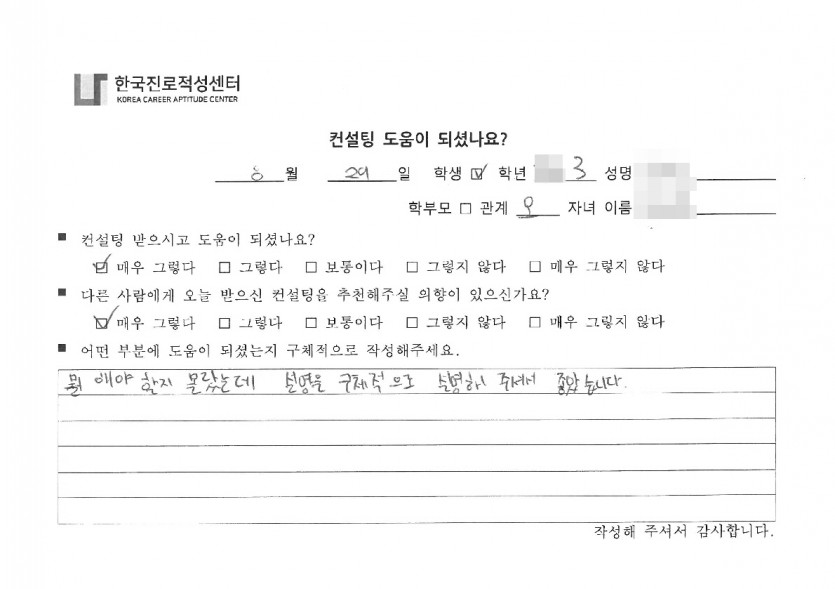 한국진로적성센터
KOREA CAREER APTITUDE CENTER
컨설팅 도움이 되셨나요?
8 월 29 일 학생 ☑ 학년 3 성명
학부모 □ 관계 모 자녀 이름
■ 컨설팅 받으시고 도움이 되셨나요?
☑ 매우 그렇다 □ 그렇다 □ 보통이다 □ 그렇지 않다 □ 매우 그렇지 않다
■ 다른 사람에게 오늘 받으신 컨설팅을 추천해주실 의향이 있으신가요?
☑ 매우 그렇다 □ 그렇다 □ 보통이다 □ 그렇지 않다 □ 매우 그렇지 않다
■ 어떤 부분에 도움이 되셨는지 구체적으로 작성해주세요.
뭘 해야 할지 몰랐는데 설명을 구체적으로 설명해 주셔서 좋았습니다.
작성해 주셔서 감사합니다.